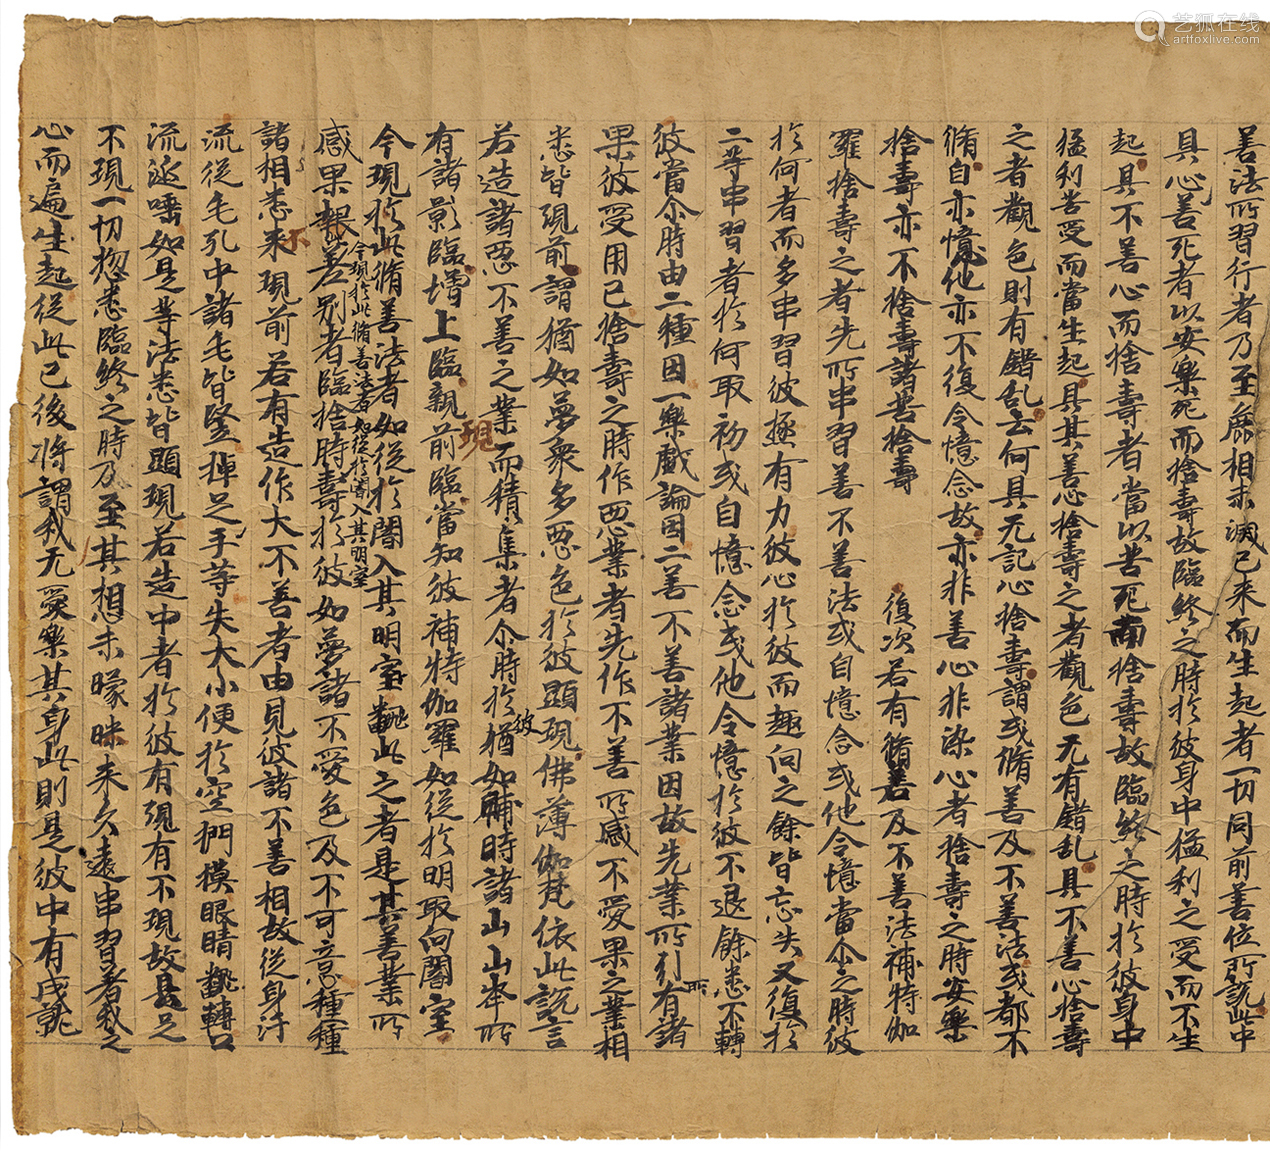 善法所習行者乃至麁相未滅已来而生起者一切同前善位所說此中
具心善死者以安樂死而捨壽故臨終之時於彼身中猛利之受而不生
起具不善心而捨壽者當以苦死而捨壽故臨終之時於彼身中
猛利苦受而當生起具其善心捨壽之者觀色无有錯乱具不善心捨壽
之者觀色則有錯乱云何具无記心捨壽謂或脩善及不善法或都不
脩自亦憶他亦不復令憶念故亦非善心非染心者捨壽之時安樂
捨壽亦不捨壽諸苦捨壽 復次若有脩善及不善法補特伽
羅捨壽之者先所串習善不善法或自憶念或他令憶當尒之時彼
於何者而多串習彼極有力彼心於彼而趣向之餘皆忘失又復於
二等串習者於何取初或自憶念或他令憶於彼不退餘悉不轉
彼當尒時由二種因一樂戲論因二善不善諸業因故先業所引有諸
所
果彼受用已捨壽之時作惡業者先作不善所感不愛果之業相
悉皆現前謂猶如夢衆多惡色於彼顯現佛薄伽梵依此說言
若造諸惡不善之業而積集者尒時於猶如晡時諸山山峯所
彼
有諸影臨增上臨親前臨當知彼補特伽羅如從於明取向闇室
現
今現於此脩善法者如從於闇入其明室翻此之者是其善業所
今現於此脩善法者如從於闇入其明室
感果報差别者臨捨時壽於彼如夢諸不愛色及不可意種種
諸相悉来現前若有造作大不善者由見彼諸不善相故從身汗
不
流從毛孔中諸毛皆竪掉足手等失大小便於空捫摸眼睛翻轉口
流涎唾如是等法悉皆顯現若造中者於彼有現有不現故是足
不現一切惣悉臨終之時及至其想未曚昧来久遠串習者我之
心而遍生起從此已後將謂我无愛樂其身此則是彼中有成就
艺狐在线
artfoxlive.com